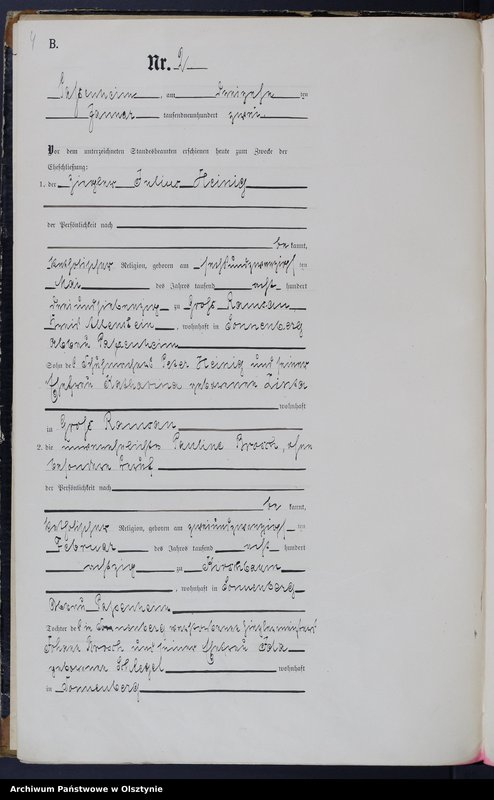 4 B.
Nr. 2
am dreizehnten
Januar tausendneunhundert zwei
Vor dem unterzeichneten Standesbeamten erschienen heute zum Zwecke der
Eheschließung:
1. der Ziegler Julius Heinig
der Persönlichkeit nach
bekannt,
katholischer Religion, geboren am sechsundzwanzigsten
Mai des Jahres tausend acht hundert
dreiundsiebenzig zu Groß Ramsau
Kreis Allenstein, wohnhaft in Sonnenberg
Sohn des Peter Heinig und seiner
Ehefrau Katharina geborenen
wohnhaft
in Groß Ramsau
2. die unverehelichte Pauline Broosch, ohne
besonderen Beruf
der Persönlichkeit nach
bekannt,
katholischer Religion, geboren am zweiundzwanzigsten
Februar des Jahres tausend acht hundert
achtzig zu Kirschbaum
, wohnhaft in Sonnenberg
Tochter des in Sonnenberg verstorbenen Zieglermeisters
Johann Broosch und seiner Ehefrau Ida
geborenen Schlegel wohnhaft
in Sonnenberg
Archiwum Państwowe w Olsztynie